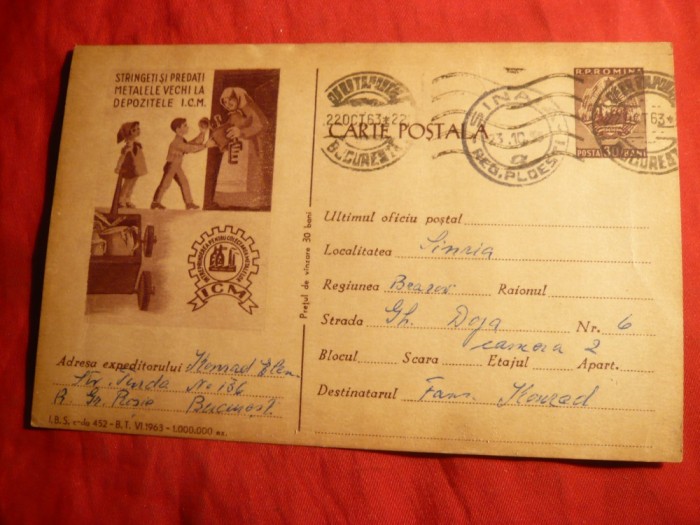 STRINGEȚI ȘI PREDAȚI
METALELE VECHI LA
DEPOZITELE I.C.M.
ICM
Prețul de vînzare 30 bani
22OCT63*22
BUCUREȘTI
CARTE POSTALĂ
SINAIA
23.10.
REG. PLOEȘTI
R.P.ROMINA
63*
BUCUREȘTI
POSTA 30 BANI
Ultimul oficiu poștal
Localitatea Sinaia
Regiunea Brasov Raionul
Strada Gh. Doja Nr. 6
camera 2
Blocul Scara Etajul Apart.
Destinatarul Fam. Konrad
Adresa expeditorului Konrad Elena
Str. Turda No 136
R. Gr. Roșie Bucureșt.
I.B.S. c-da 452 - B.T. VI 1963 - 1.000.000 ex.